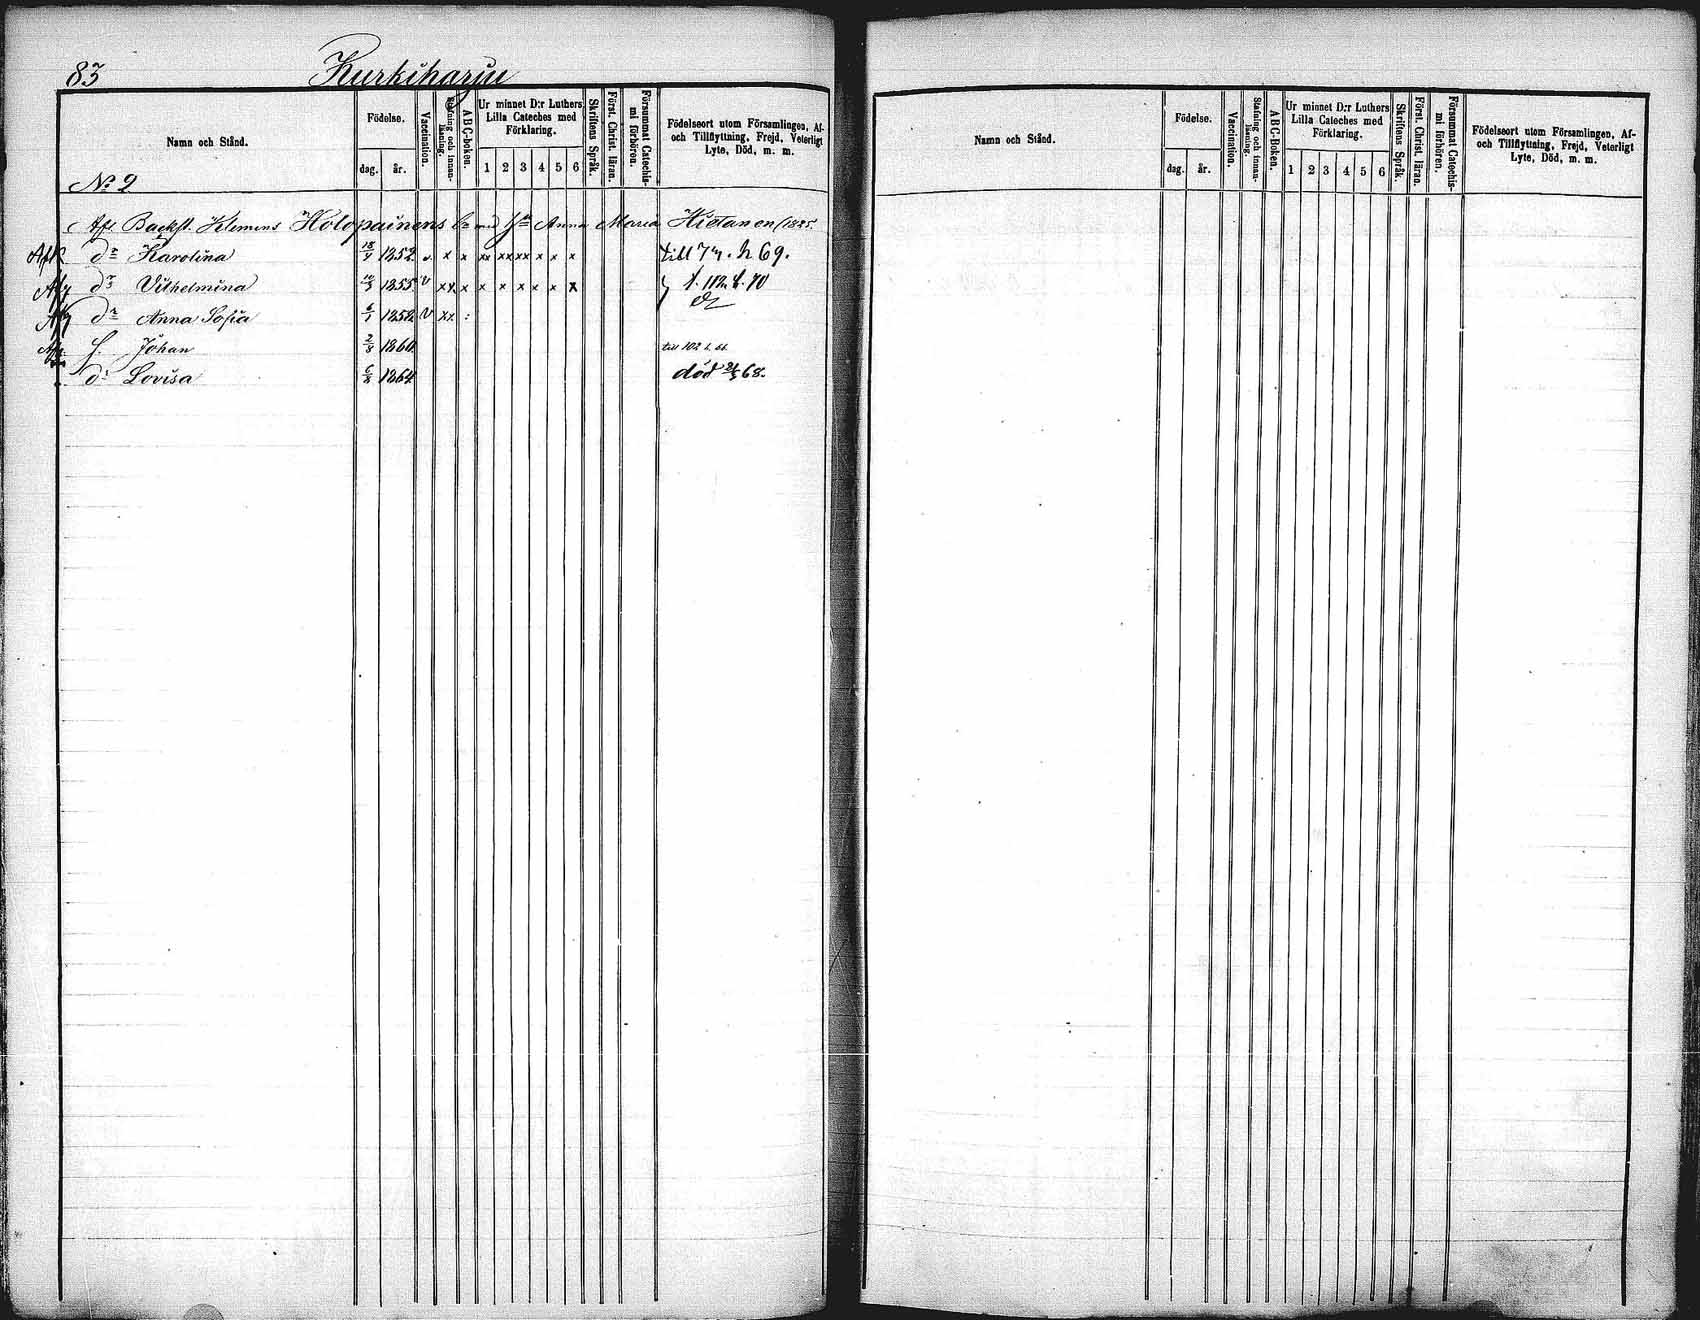 83 Kurkiharju
Namn och Stånd.
Födelse.
dag. år.
Vaccination.
Stafning och innan-läsning.
ABC-boken.
Ur minnet D:r Luthers
Lilla Cateches med
Förklaring.
1 2 3 4 5 6
Skriftens Språk.
Först. Christ. läran.
Försummat Catechis-
mi förhören.
Födelseort utom Församlingen, Af-
och Tillflyttning, Frejd, Veterligt
Lyte, Död, m. m.
No 2
Afl. Backst. Klemens Holopainens med Anna Maria Hietanen (1825.
dr Karolina 18/9 1852 v x x xx xx xx x x x till 74. h 69.
Afg dr Vilhelmina 1855 v xx x x x x x x x t. 112 h. 70
Afg dr Anna Sofia 6/1 1858 v xx :
s. Johan 2/8 1860 till 102 h. 66
dr Lovisa 6/8 1864 död 68.
Namn och Stånd.
Födelse.
dag. år.
Vaccination.
Stafning och innan-läsning.
ABC-Boken.
Ur minnet D:r Luthers
Lilla Cateches med
Förklaring.
1 2 3 4 5 6
Skriftens Språk.
Först. Christ. läran.
Försummat Catechis-
mi förhören.
Födelseort utom Församlingen, Af-
och Tillflyttning, Frejd, Veterligt
Lyte, Död, m. m.